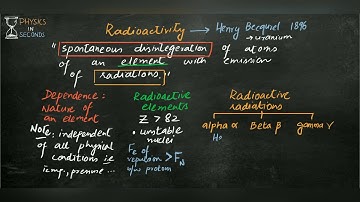 PHYSICS
IN
SECONDS
Radioactivity → Henry Becquerel 1896
→ uranium
"spontaneous disintegeration of atoms
of an element with emission
of radiations."
Dependence:
Nature of
an element
Note: independent
of all physical
conditions i.e
temp, pressure ...
Radioactive
elements
Z > 82
• unstable
nuclei
FE of
repulsion > FN
b/w protons
Radioactive
radiations
alpha α Beta β gamma γ
He